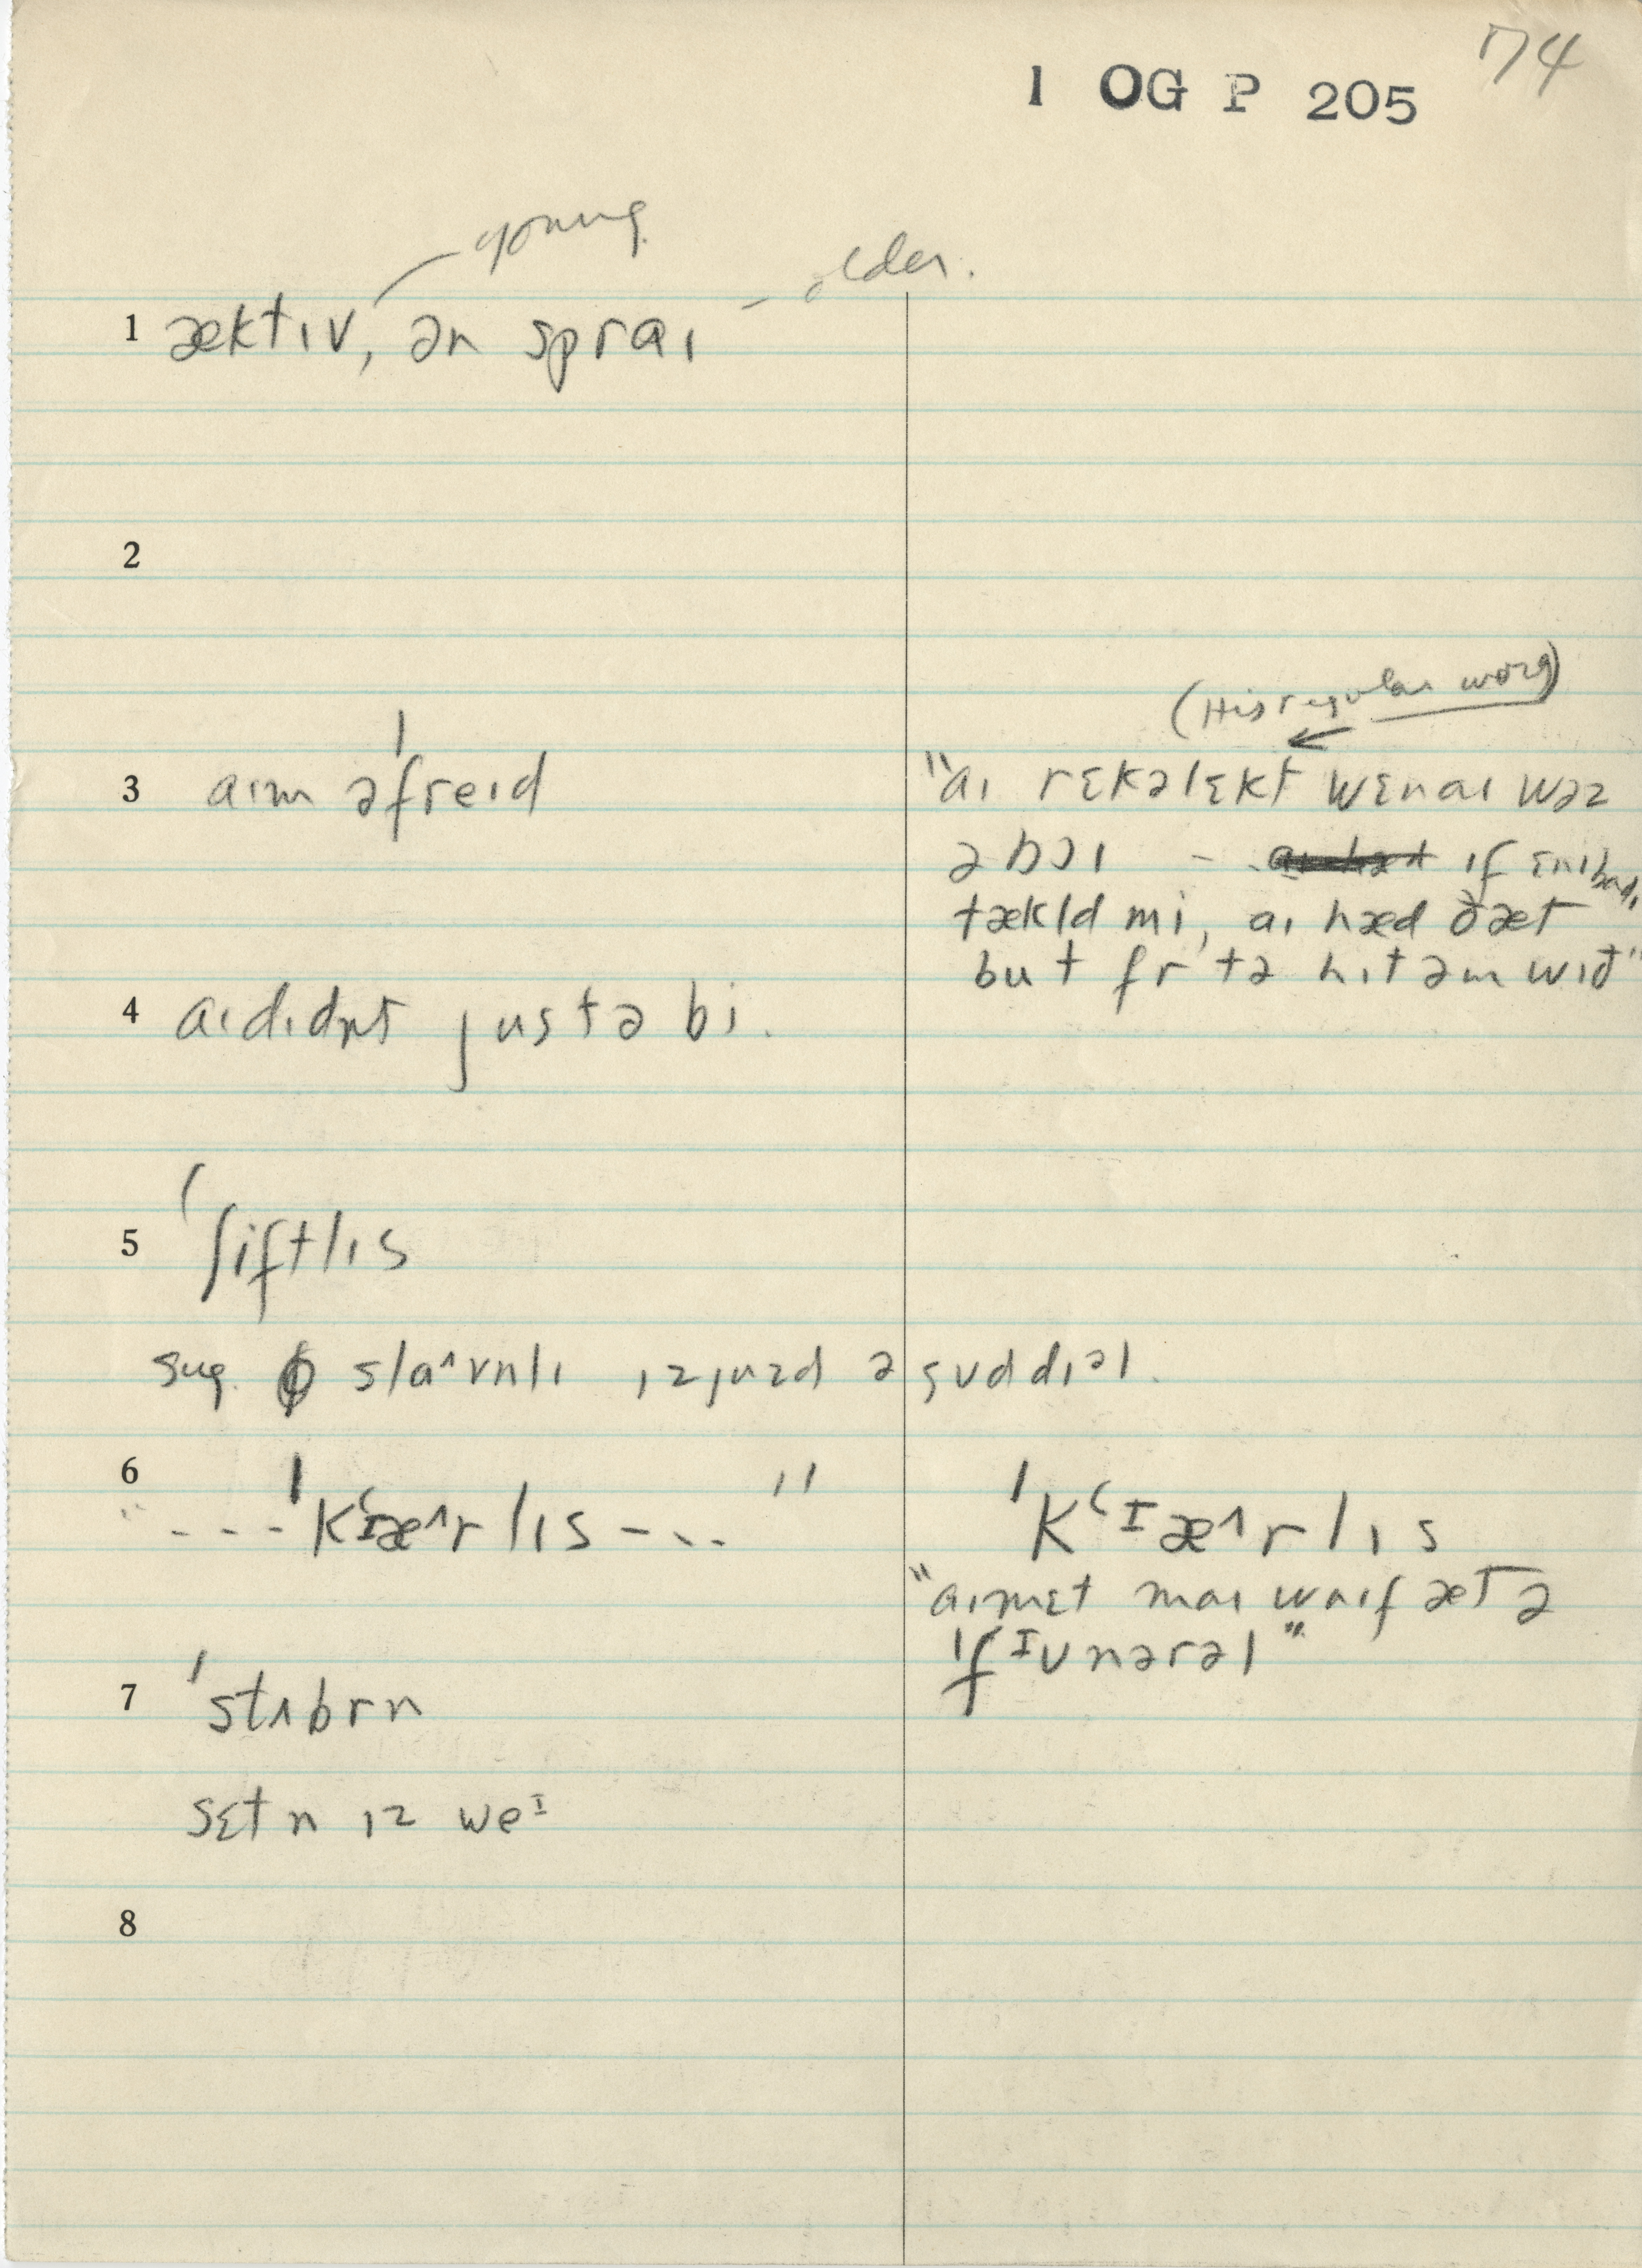 74
1 OG P 205
young
older.
1 æktɪv, ən spraɪ
2
(His regular word)
3 aɪm əˈfreɪd
"aɪ rɛkəlɛkt wɛnaɪ wəz
ə bɔɪ - if ɛnɪbadɪ
tækld mi, aɪ hæd ðæt
but fr tə hɪt əm wɪð"
4 aɪdɪdn̩t justə bi.
5 ʃiftlɪs
sug. slaˆvnlɪ ɪz juzd ə gud dɪəl.
6 "---ˈkʻɪæˆrlɪs---"
ˈkʻɪæˆrlɪs
"aɪmɛt maɪ waɪf æt ə
ˈfɪunərəl"
7 ˈstʌbrn
sɛt n ɪz weɪ
8